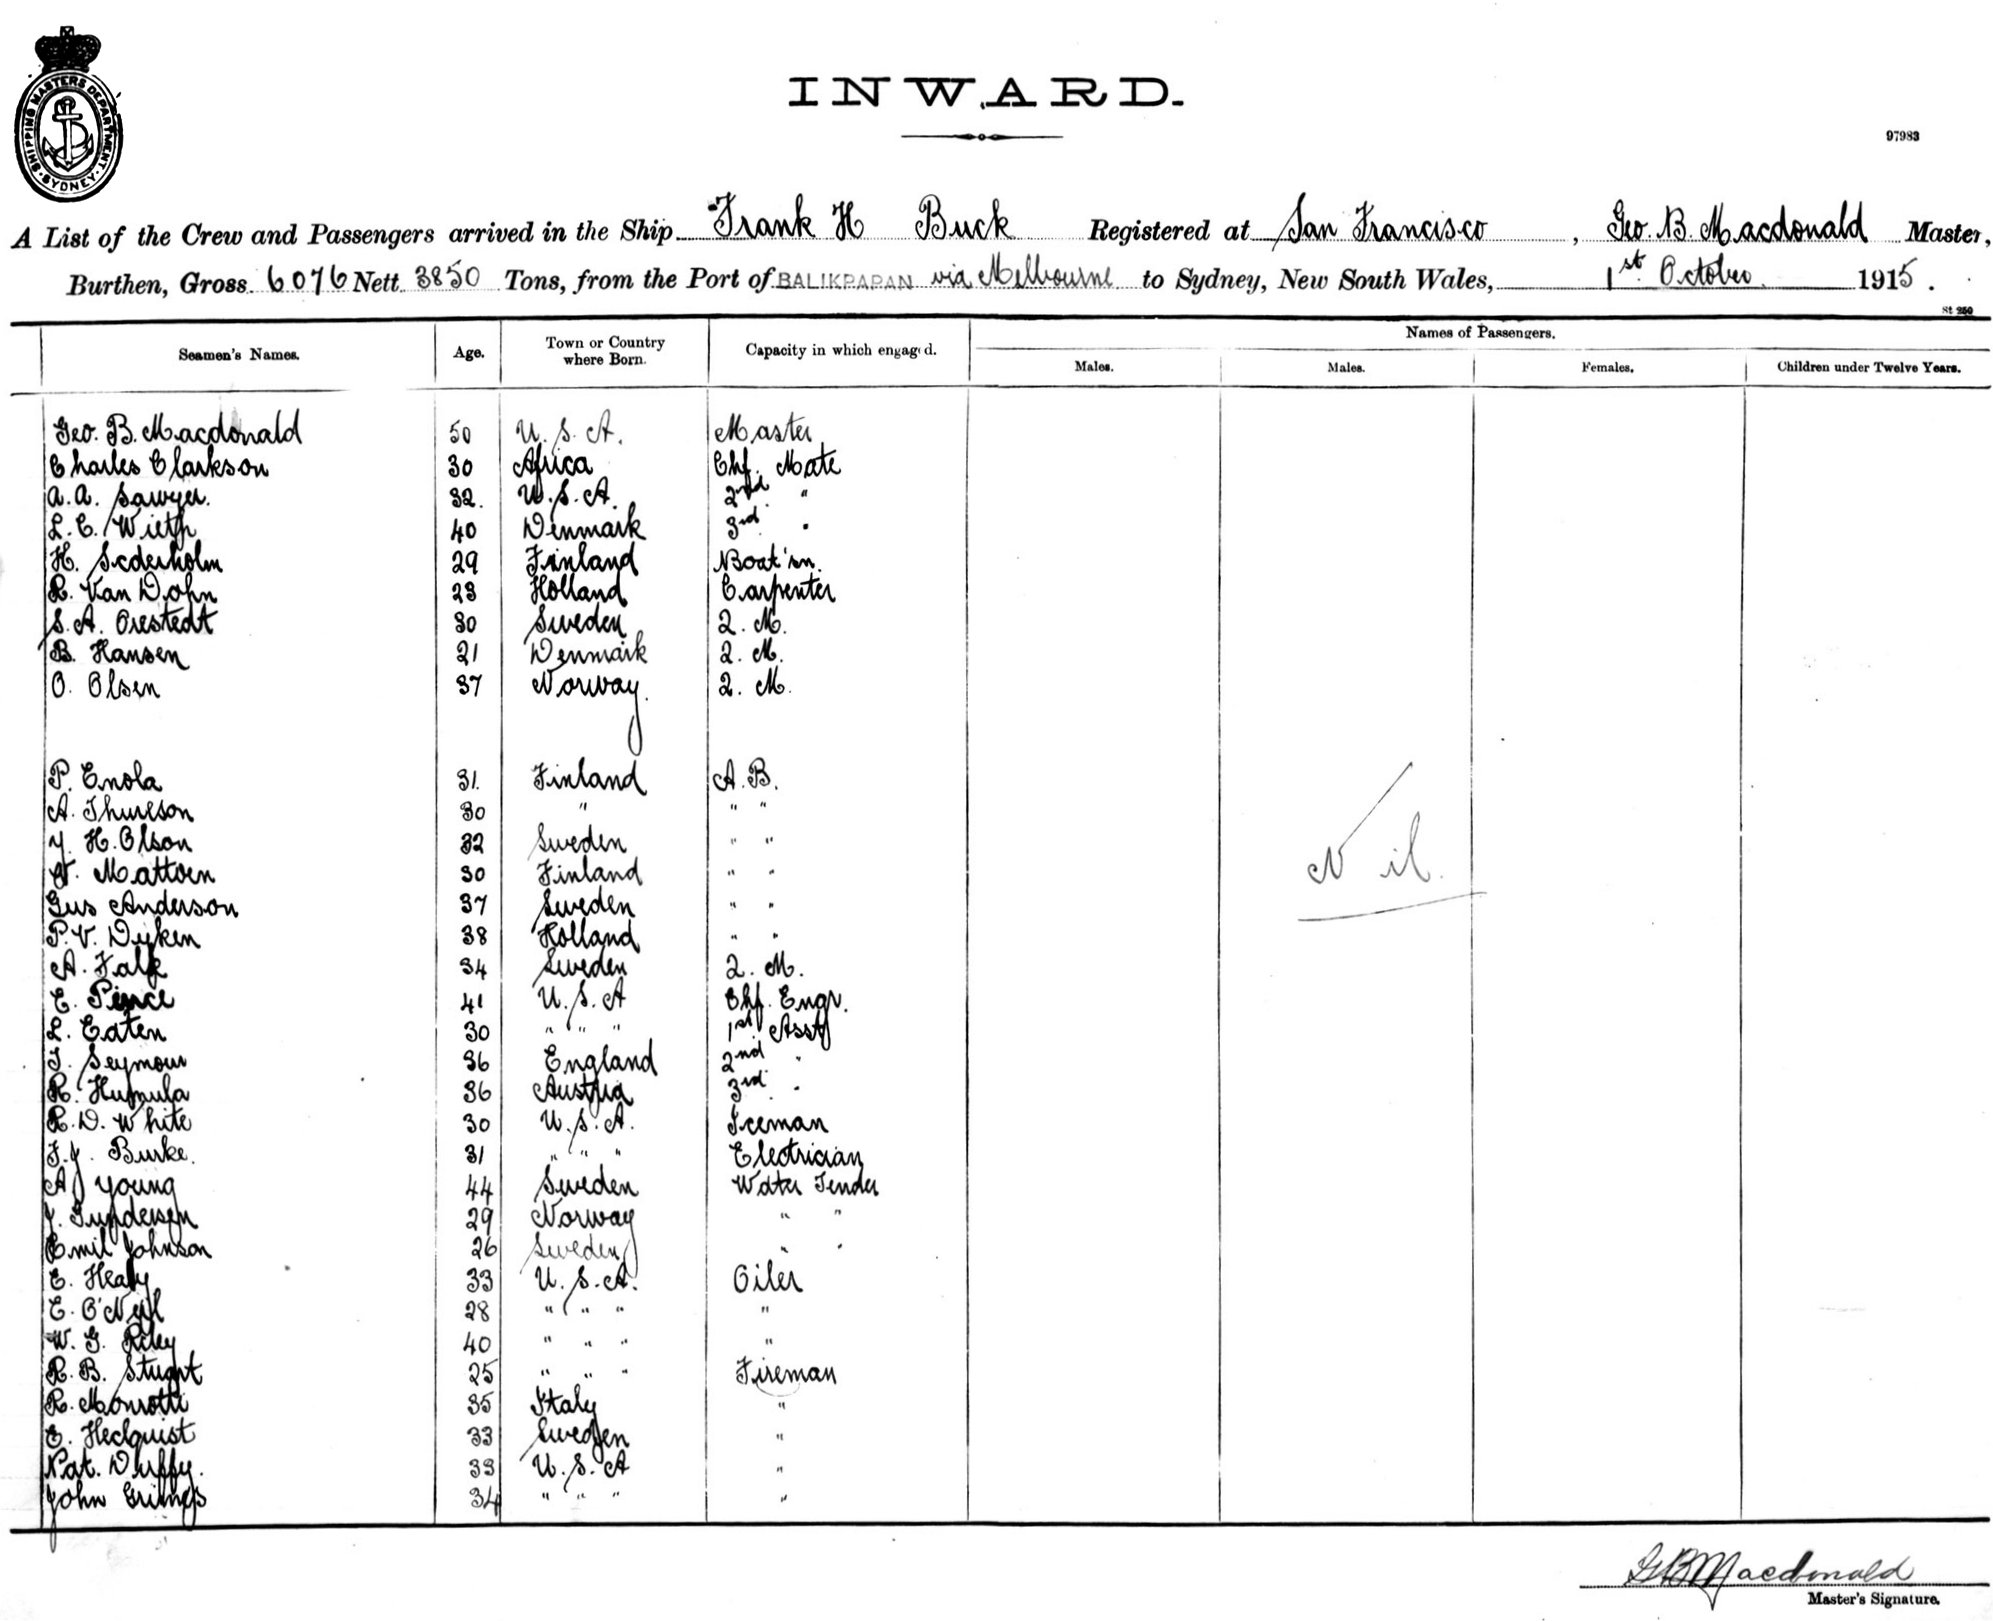 SHIPPING MASTERS DEPARTMENT. SYDNEY.
INWARD.
97983
A List of the Crew and Passengers arrived in the Ship Frank H Buck Registered at San Francisco, Geo. B. Macdonald Master,
Burthen, Gross 6076 Nett 3850 Tons, from the Port of BALIKPAPAN via Melbourne to Sydney, New South Wales, 1st October 1915.
St 250
Seamen's Names. Age. Town or Country where Born. Capacity in which engaged. Names of Passengers.
Males. Males. Females. Children under Twelve Years.
Geo. B. Macdonald 50 U.S.A. Master
Charles Clarkson 30 Africa Chf. Mate
A.A. Sawyer. 32. U.S.A. 2nd "
L.C. Wieth 40 Denmark 3rd "
H. Scderholm 29 Finland Boat'sn.
R. Van Dohn 23 Holland Carpenter
S.A. Orestedt 30 Sweden 2. M.
B. Hansen 21 Denmark 2. M.
O. Olsen 37 Norway. 2. M.
P. Enola 31. Finland A.B.
A. Thureson 30 " " "
Y. H. Olson 32 Sweden " "
Mattsen 30 Finland " "
Gus Anderson 37 Sweden " "
P.V. Dyken 38 Holland " "
A. Falk 34 Sweden 2. M.
E. Pierce 41 U.S.A Chf. Engr.
L. Eaten 30 " " " 1st Asst
T. Seymour 36 England 2nd "
R. Humula 36 Austria 3rd "
R.D. White 30 U.S.A. Iceman
F.J. Burke. 31 " " " Electrician
A J Young 44 Sweden Water Tender
J. Gundersen 29 Norway " "
Emil Johnson 26 Sweden " "
E. Healy 33 U.S.A. Oiler
E. O'Neil 28 " " " "
W. G. Riley 40 " " " "
R. B. Stuart 25 " " " Fireman
R. Monrotti 35 Italy "
E. Hedquist 33 Sweden "
Pat. Duffy. 33 U.S.A "
John Grimes 34 " " " "
Nil.
G B Macdonald
Master's Signature.